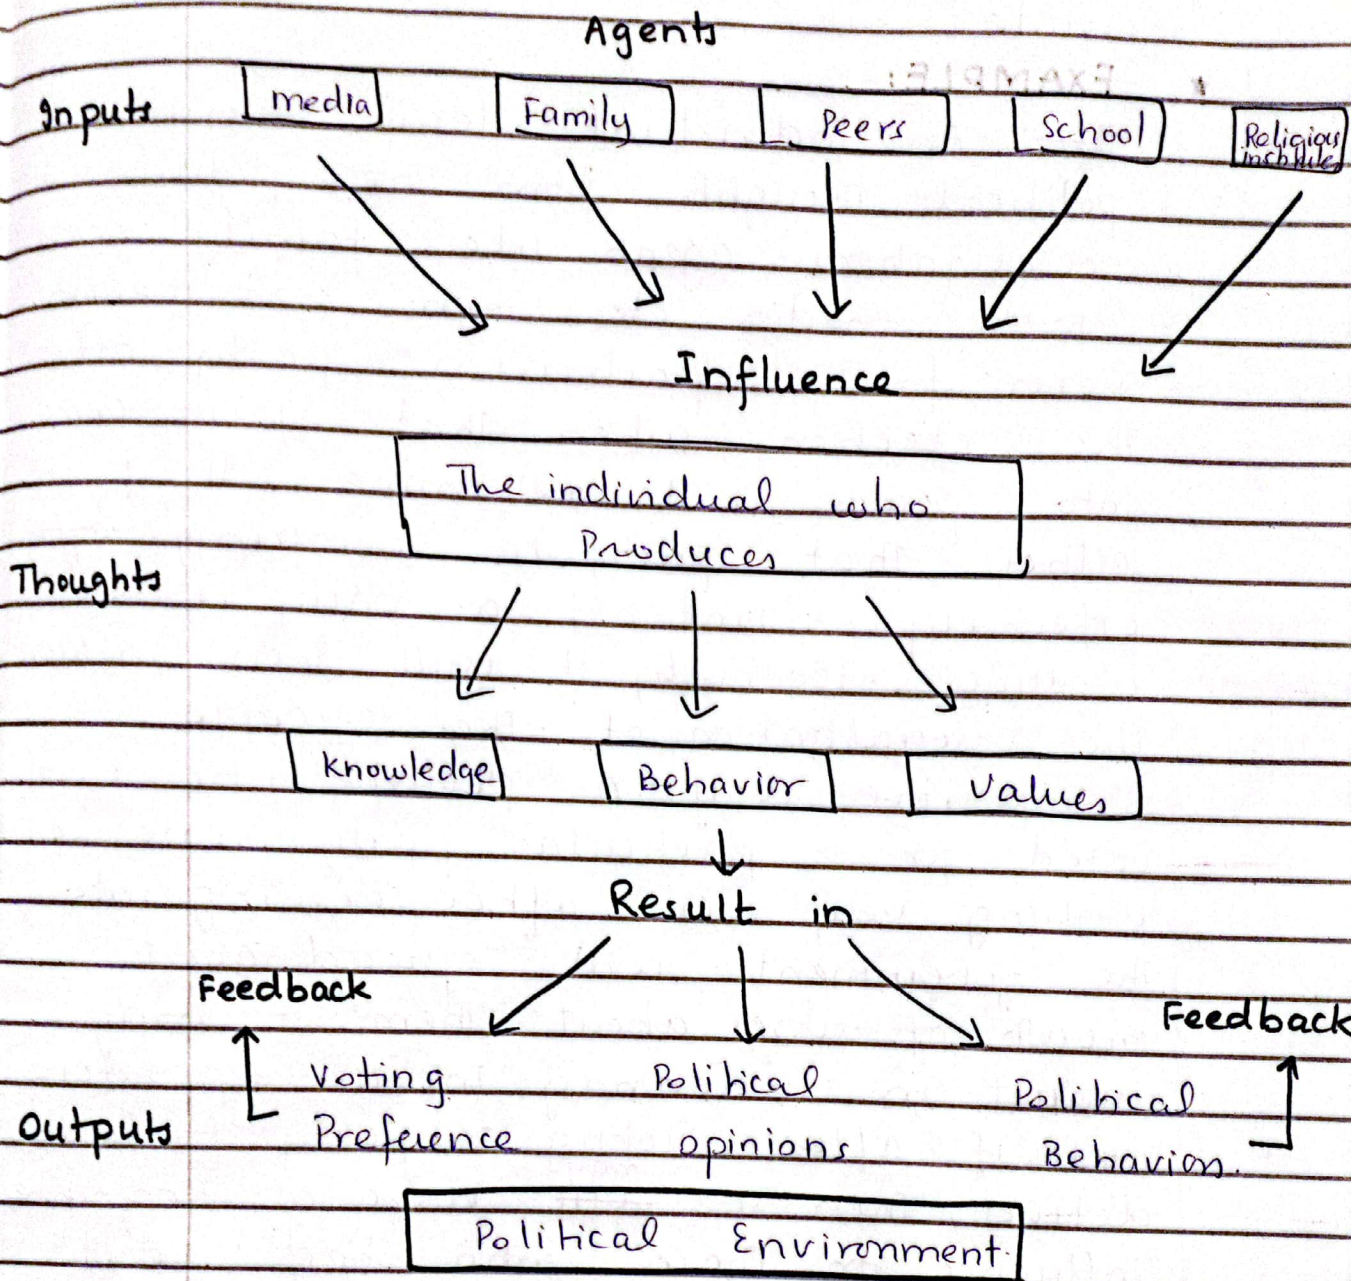 Agents
Inputs media Family Peers School Religious
institutes
Influence
The individual who
Produces
Thoughts
Knowledge Behavior Values
Result in
Feedback Feedback
Voting Political Political
Outputs Preference opinions Behavior.
Political Environment.